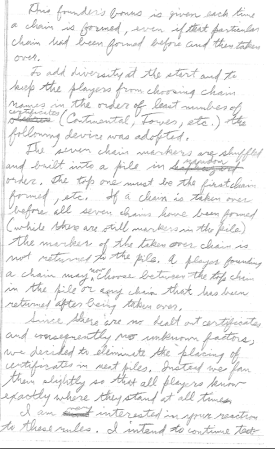 This founder's bonus is given each time
a chain is formed, even if that particular
chain had been formed before and then taken
over.
To add diversity at the start and to
keep the players from choosing chain
names in the order of least numbers of
certificates
(Continental, Tower, etc.) the
following device was adopted.
The seven chain markers are shuffled
and built into a pile in random
order. The top one must be the first chain
formed, etc. If a chain is taken over
before all seven chains have been formed
(while there are still markers in the pile)
the marker of the taken over chain is
not returned to the pile. A player founding
a chain may choose between the top chain
in the pile or any chain that has been
returned after being taken over.
Since there are no dealt out certificates
and consequently no unknown factors,
we decided to eliminate the placing of
certificates in neat piles. Instead we fan
them slightly so that all players know
exactly where they stand at all times.
I am interested in your reaction
to these rules. I intend to continue test